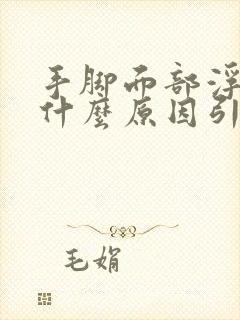 手脚而部浮
什麼原因引
毛娟